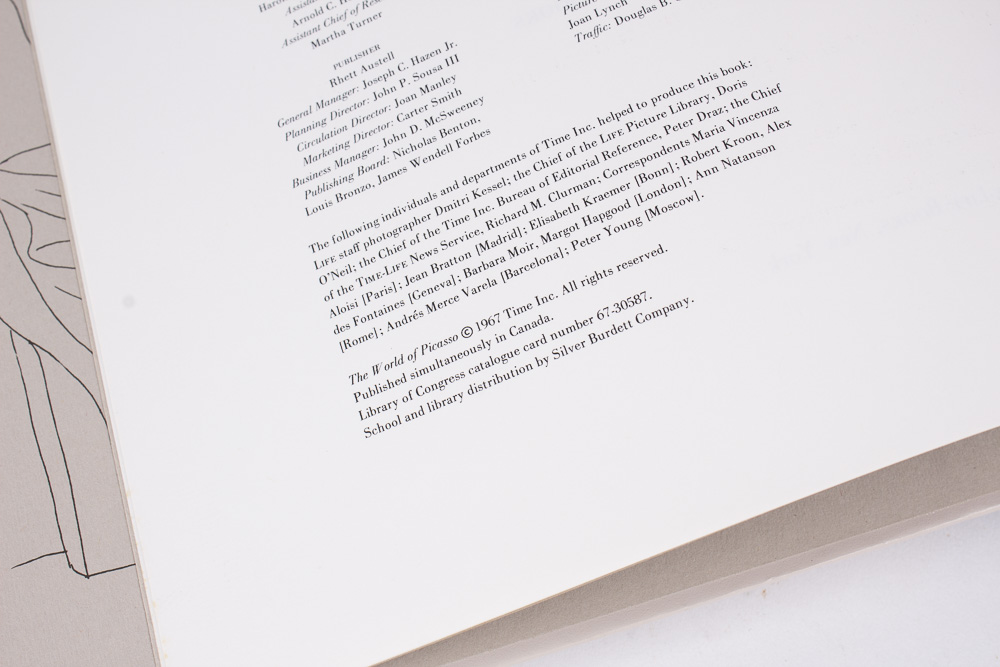 Arnold C.
Assistant Chief of
Martha Turner
PUBLISHER
Rhett Austell
General Manager: Joseph C. Hazen Jr.
Planning Director: John P. Sousa III
Circulation Director: Joan Manley
Marketing Director: Carter Smith
Business Manager: John D. McSweeney
Publishing Board: Nicholas Benton,
Louis Bronzo, James Wendell Forbes
Joan Lynch
Traffic: Douglas B.
The following individuals and departments of Time Inc. helped to produce this book:
LIFE staff photographer Dmitri Kessel; the Chief of the LIFE Picture Library, Doris
O'Neil; the Chief of the Time Inc. Bureau of Editorial Reference, Peter Draz; the Chief
of the TIME-LIFE News Service, Richard M. Clurman; Correspondents Maria Vincenza
Aloisi [Paris]; Jean Bratton [Madrid]; Elisabeth Kraemer [Bonn]; Robert Kroon, Alex
des Fontaines [Geneva]; Barbara Moir, Margot Hapgood [London]; Ann Natanson
[Rome]; Andrés Merce Varela [Barcelona]; Peter Young [Moscow].
The World of Picasso © 1967 Time Inc. All rights reserved.
Published simultaneously in Canada.
Library of Congress catalogue card number 67-30587.
School and library distribution by Silver Burdett Company.